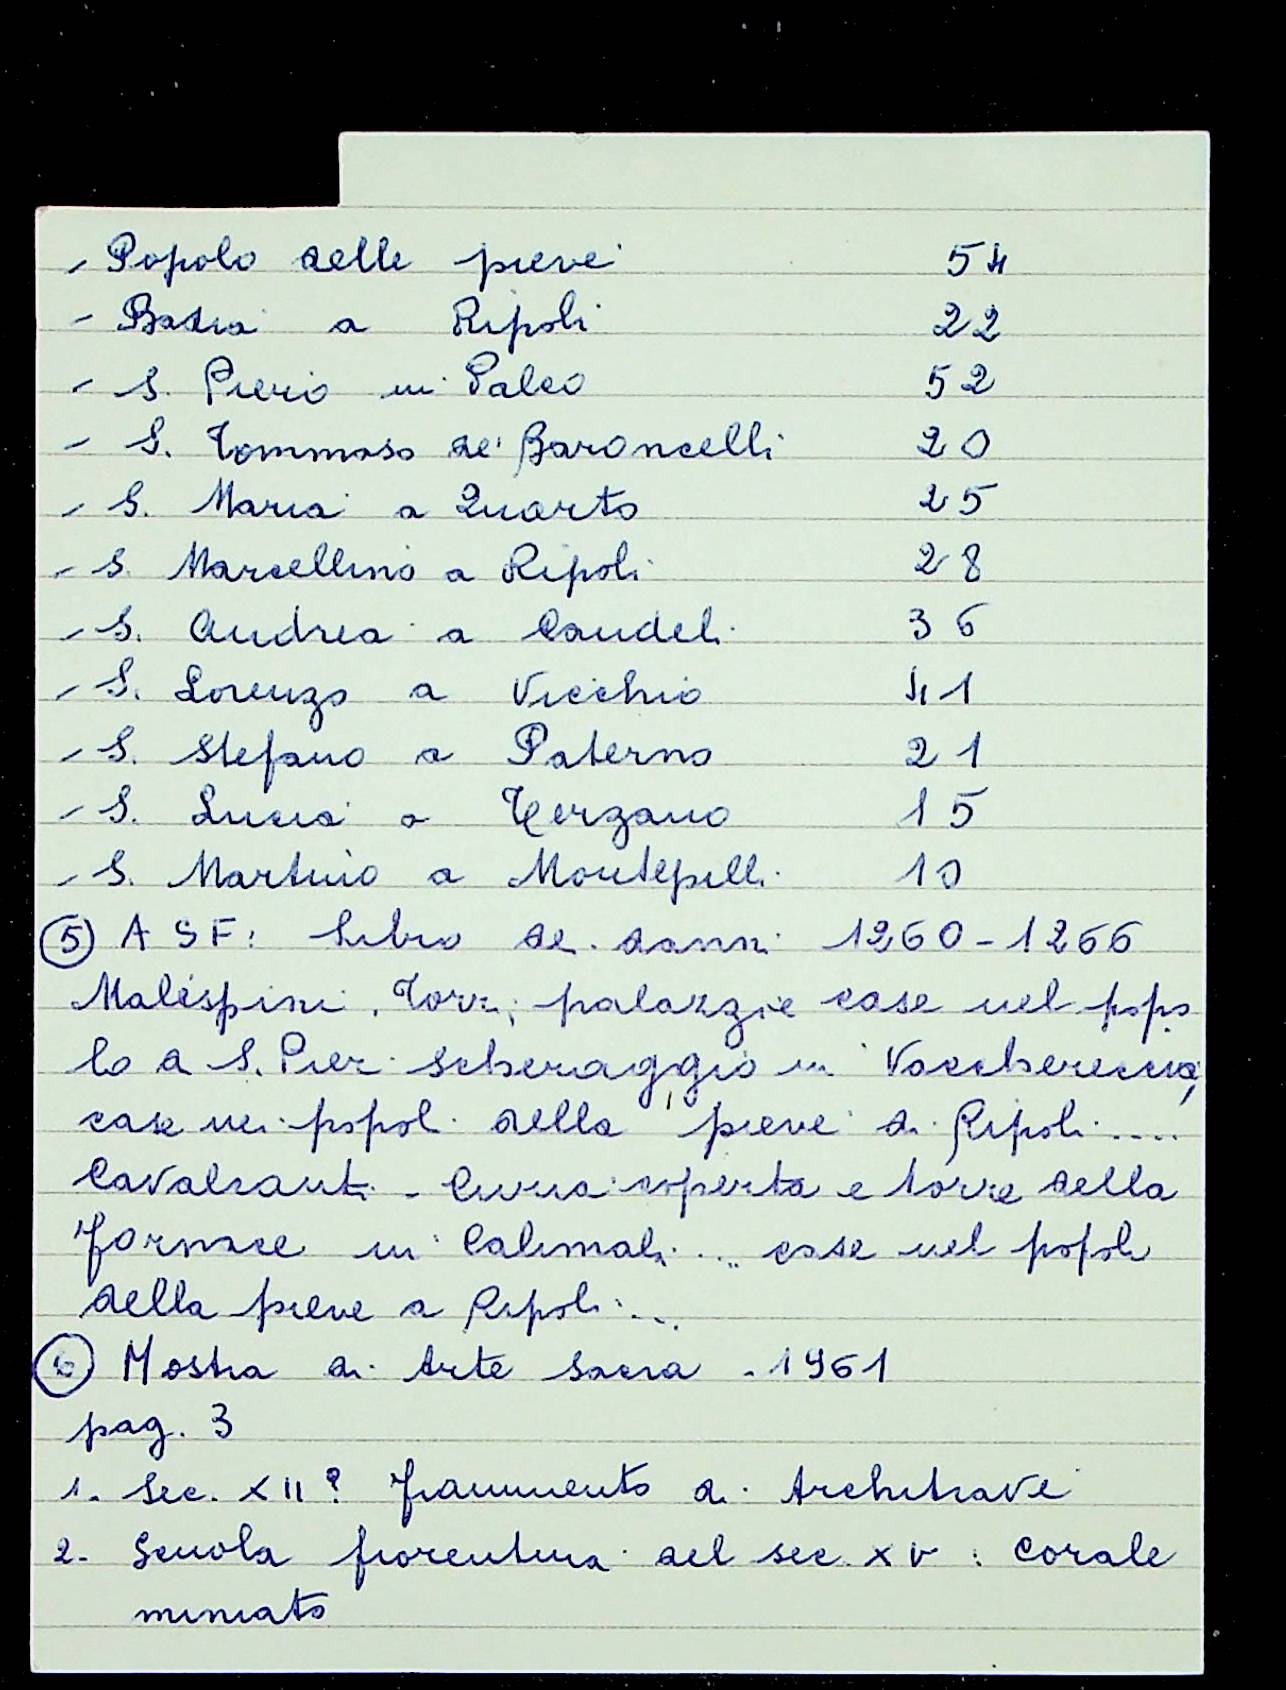 - Popolo della pieve 54
- Badia a Ripoli 22
- S. Piero in Palco 52
- S. Tommaso de' Baroncelli 20
- S. Maria a Quarto 25
- S. Marcellino a Ripoli 28
- S. Andrea a Candeli 36
- S. Lorenzo a Vicchio 41
- S. Stefano a Paterno 21
- S. Lucia a Terzano 15
- S. Martino a Montepilli 10
5 A S F: Libro dei danni 1260-1266
Malespini, Torri, palazzi e case nel popo
lo a S. Pier Scheraggio in Vacchereccia,
case nei popoli della pieve di Ripoli ....
Cavalcanti - Curia coperta e torre della
fornace in Calimala ... case nel popolo
della pieve a Ripoli ...
6 Mostra di Arte sacra - 1961
pag. 3
1. Sec. XII? Frammento di Architrave
2. Scuola fiorentina del sec. XV: Corale
miniato